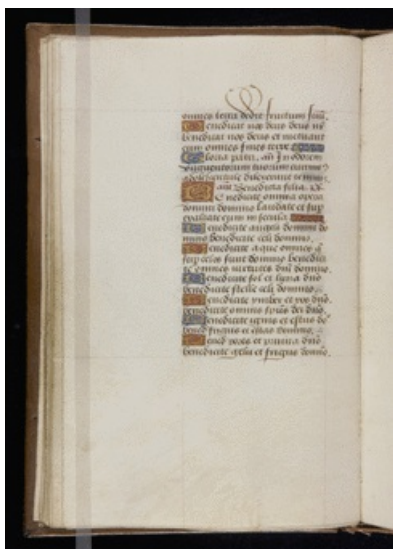 omnes terra dedit fructum suu
Benedicat nos deus deus nr
benedicat nos deus et metuant
eum omnes fines terre
Gloria patri. añ In odorem
unguentorum tuorum currimus
adolescentule dilexerunt te nimis
añ Benedicta filia. Ps
Benedicite omnia opera
domini domino laudate et sup
exaltate eum in secula
Benedicite angeli domini do
mino benedicite celi domino.
Benedicite aque omnes q
sup celos sunt domino benedici
te omnes virtutes dni domino.
Benedicite sol et luna dno
benedicite stelle celi domino.
Benedicite ymber et ros dno
benedicite omnis spus dei dno
Benedicite ignis et estus do
bened frigus et estas domino.
Bened rores et pruina dno
benedicite gelu et frigus domino